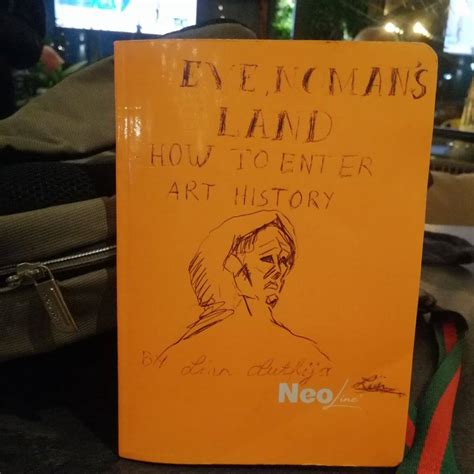 EVE, NOMAN'S
LAND
HOW TO ENTER
ART HISTORY
BY Liin
NeoLine